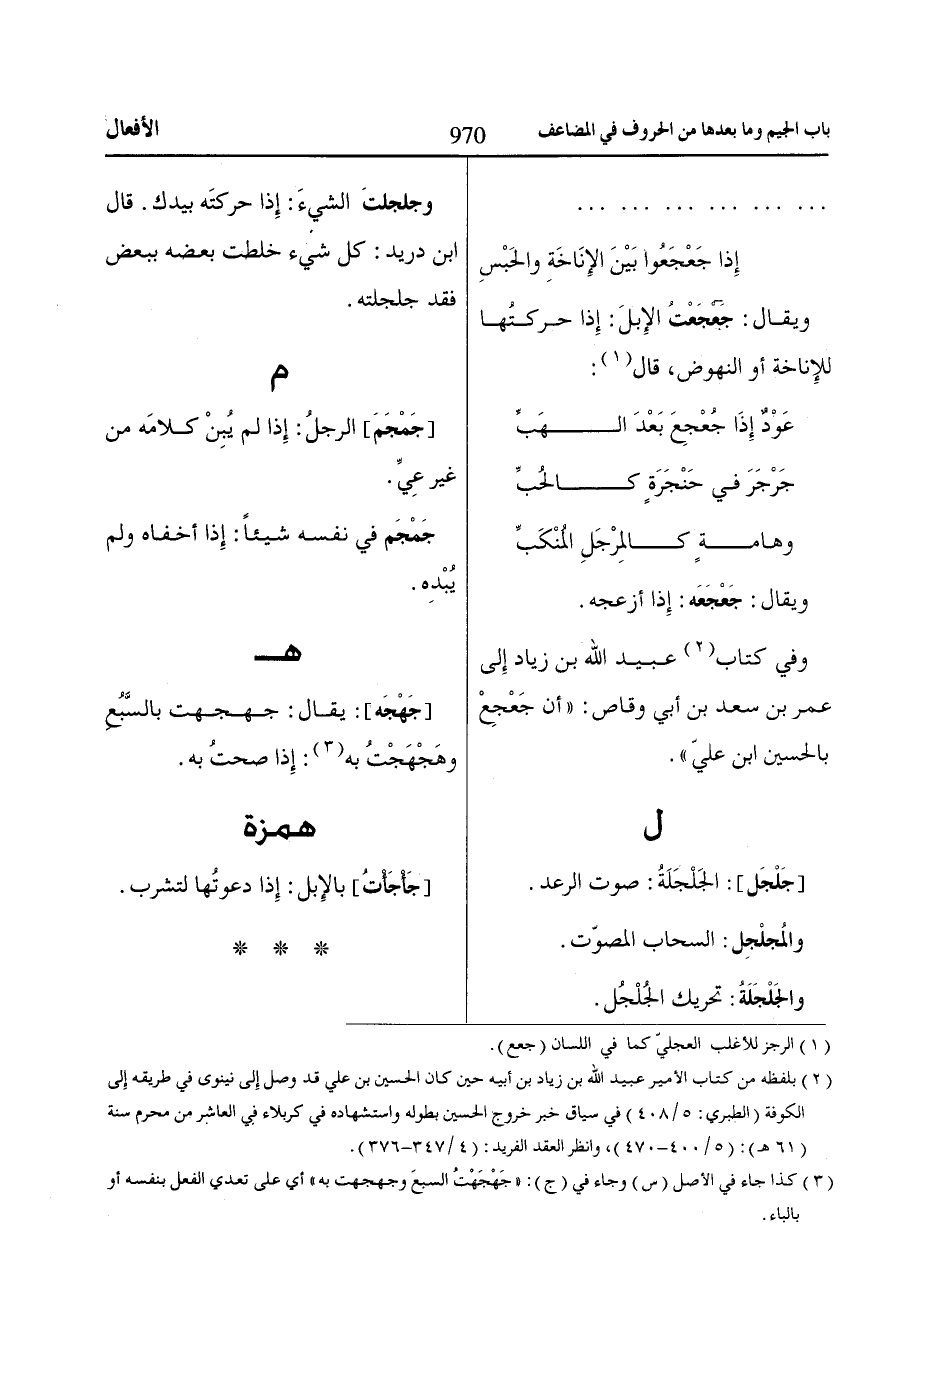 باب الجيم وما بعدها من الحروف في المضاعف 970 الأفعال
... ... ... ... ... ...
إذا جَعْجَعُوا بَيْنَ الإنَاخَةِ والحَبْسِ
ويقال: جَعْجَعْتُ الإبلَ: إذا حركتُها
للإناخة أو النهوض، قال(١):
عَوْدٌ إذَا جُعْجِعَ بَعْدَ الـهَبِّ
جَرْجَرَ في حَنْجَرَةٍ كـالحُبِّ
وهامـةٍ كـالمِرْجَلِ المُنْكَبِّ
ويقال: جَعْجَعَه: إذا أزعجه.
وفي كتاب(٢) عبيد الله بن زياد إلى
عمر بن سعد بن أبي وقاص: «أن جَعْجِعْ
بالحسين ابن عليّ».
ل
[جَلْجَل]: الجَلْجَلَةُ: صوت الرعد.
والمُجلْجِل: السحاب المصوّت.
والجَلْجَلَةُ: تحريك الجُلْجُل.
وجلجلتَ الشيءَ: إذا حركتَه بيدك. قال
ابن دريد: كل شيء خلطت بعضه ببعض
فقد جلجلته.
م
[جَمْجَمَ] الرجلُ: إذا لم يُبِنْ كلامَه من
غير عِيٍّ.
جَمْجَم في نفسه شيئاً: إذا أخفاه ولم
يُبْدِه.
هـ
[جَهْجَه]: يقال: جهجهت بالسَّبُعِ
وهَجْهَجْتُ به(٣): إذا صحتُ به.
همزة
[جَأْجَأْتُ] بالإبل: إذا دعوتُها لتشرب.
* * *
(١) الرجز للأغلب العجليّ كما في اللسان (جعع).
(٢) بلفظه من كتاب الأمير عبيد الله بن زياد بن أبيه حين كان الحسين بن علي قد وصل إلى نينوى في طريقه إلى
الكوفة (الطبري: ٥/٤٠٨) في سياق خبر خروج الحسين بطوله واستشهاده في كربلاء في العاشر من محرم سنة
(٦١ هـ): (٥/٤٠٠-٤٧٠)، وانظر العقد الفريد: (٤/٣٤٧-٣٧٦).
(٣) كذا جاء في الأصل (س) وجاء في (ج): «جَهْجَهْتُ السبعَ وجهجهت به» أي على تعدي الفعل بنفسه أو
بالباء.